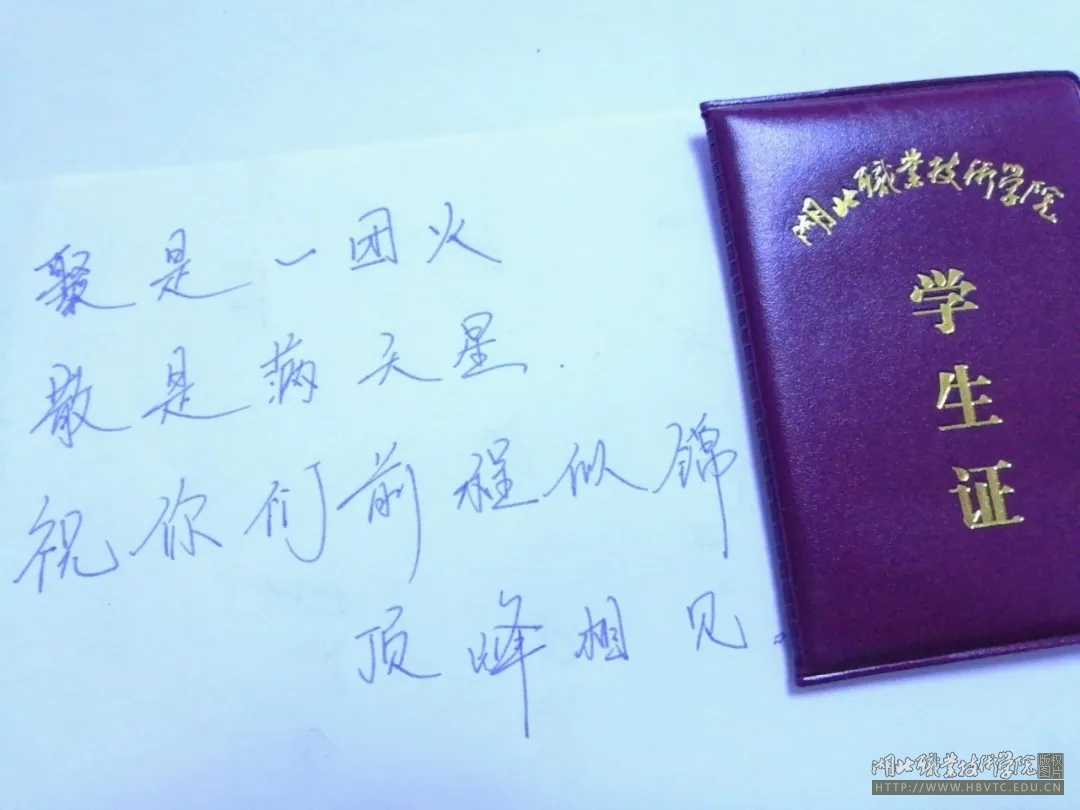 聚是一团火
散是满天星.
祝你们前程似锦
顶峰相见.
湖北职業技術学院
学生证
湖北职業技術学院
版权图片
HTTP://WWW.HBVTC.EDU.CN